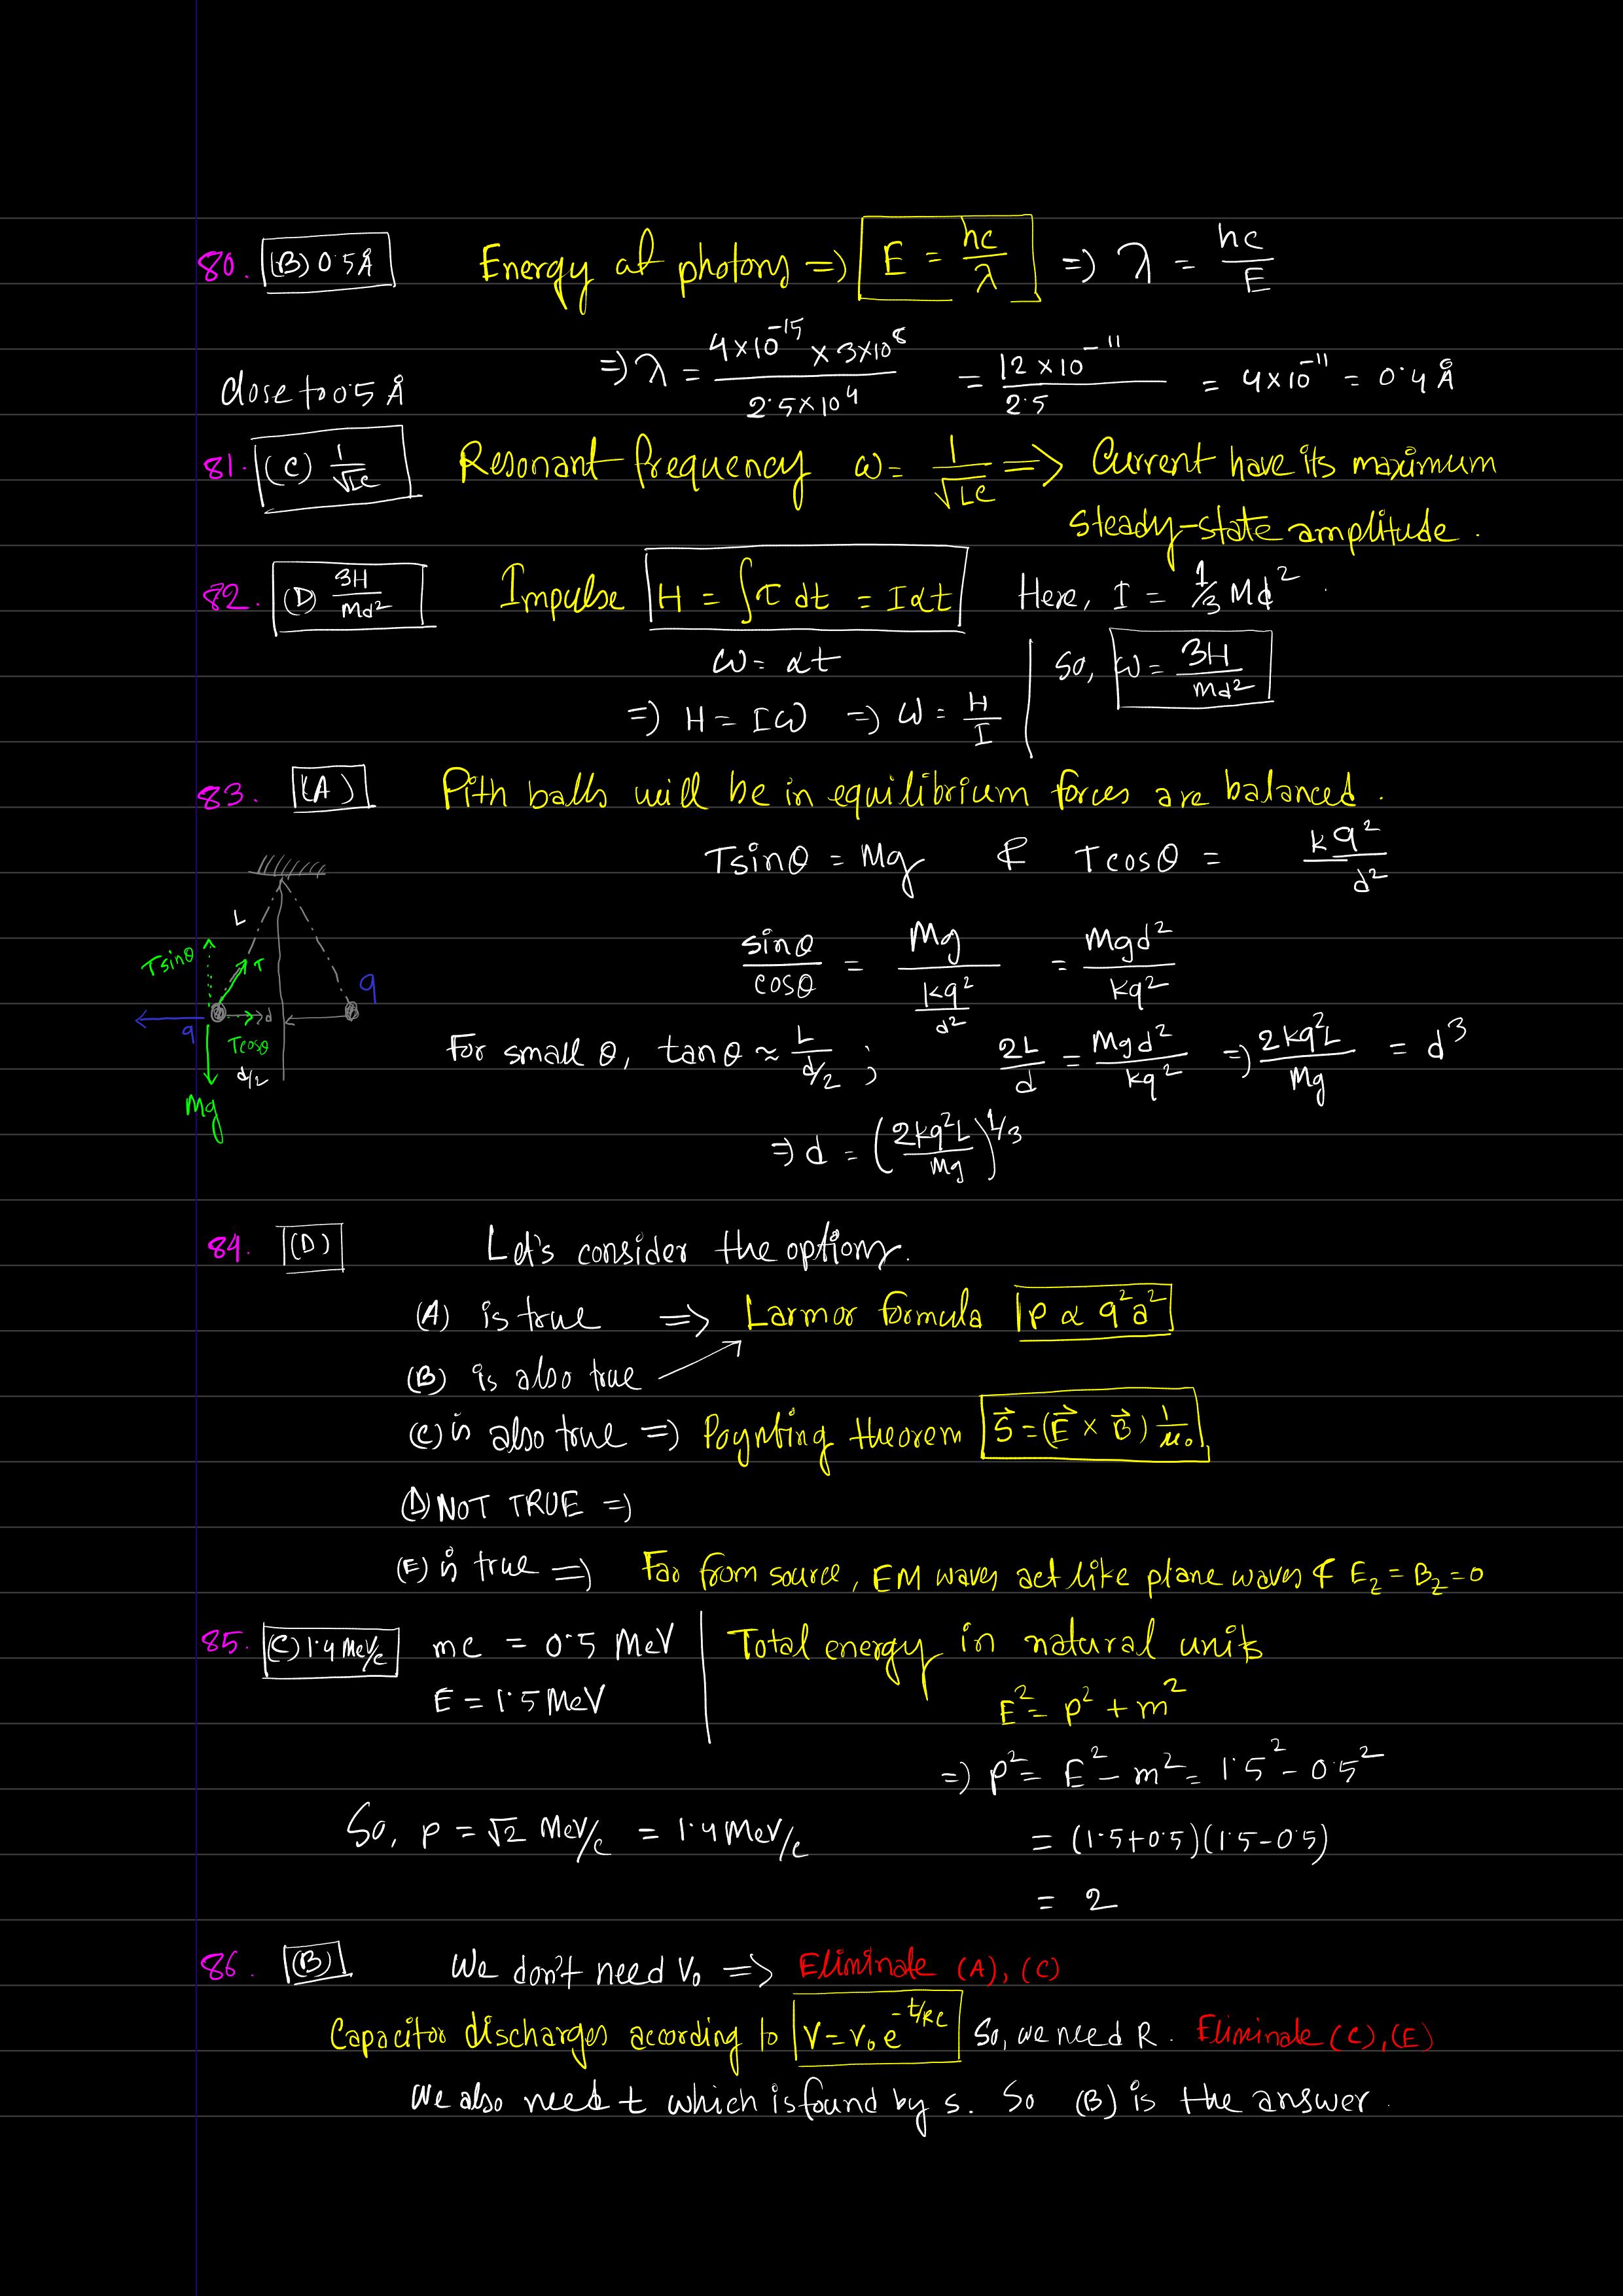 80. (B) 0.5Å Energy of photons => E = hc/λ => λ = hc/E
=> λ = 4×10^-15 × 3×10^8 / 2.5×10^4 = 12×10^-11 / 2.5 = 4×10^-11 = 0.4 Å
close to 0.5 Å
81. (C) 1/√LC Resonant frequency ω = 1/√LC => Current have its maximum
steady-state amplitude.
82. (D) 3H/Md² Impulse H = ∫τ dt = Iαt Here, I = 1/3 Md².
ω = αt So, ω = 3H/Md²
=> H = Iω => ω = H/I
83. (A) Pith balls will be in equilibrium forces are balanced.
T sinθ = Mg & T cosθ = kq²/d²
L
Tsinθ T q
q d
Tcosθ
d/2
Mg
sinθ/cosθ = Mg/(kq²/d²) = Mgd²/kq²
For small θ, tanθ ≈ L/(d/2) ; 2L/d = Mgd²/kq² => 2kq²L/Mg = d³
=> d = (2kq²L/Mg)^1/3
84. (D) Let's consider the options.
(A) is true => Larmor formula P ∝ q²a²
(B) is also true
(C) is also true => Poynting theorem S = (E × B) 1/μ₀
(D) NOT TRUE =>
(E) is true => Far from source, EM waves act like plane waves & E_z = B_z = 0
85. (C) 1.4 MeV/c mc = 0.5 MeV Total energy in natural units
E = 1.5 MeV E² = p² + m²
=> p² = E² - m² = 1.5² - 0.5²
So, p = √2 MeV/c = 1.4 MeV/c = (1.5+0.5)(1.5-0.5)
= 2
86. (B) We don't need V₀ => Eliminate (A), (C)
Capacitor discharges according to V = V₀ e^-t/RC So, we need R. Eliminate (C), (E)
We also need t which is found by s. So (B) is the answer.